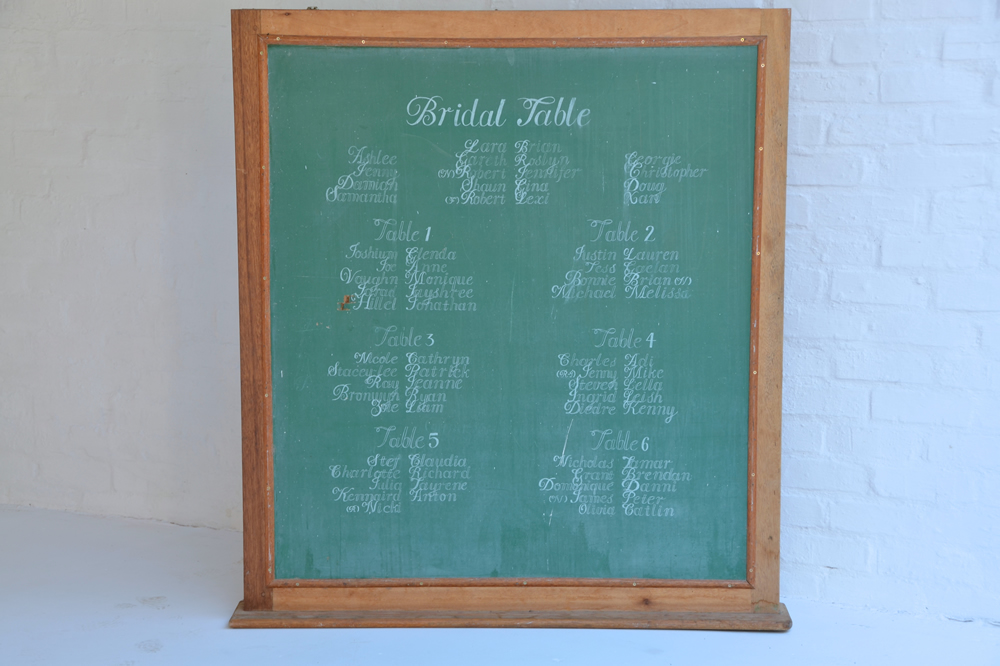 Bridal Table
Lara Brian
Ashlee Gareth Roslyn Georgie
Jenny (N) Robert Jennifer Christopher
Damian Shaun Gina Doug
Samantha Robert Lexi Karl
Table 1 Table 2
Glenda Justin Lauren
Joe Anne Tess Caelan
Vaughn Monique Bonnie Brian (N)
Jayshree Michael Melissa
Hillel Jonathan
Table 3 Table 4
Nicole Cathryn Charles Adi
Staceylee Patrick Jenny Mike
Ray Jeanne Steven Lella
Bronwyn Ryan Ingrid Leish
Zoe Liam Diedre Kenny
Table 5 Table 6
Stef Claudia Nicholas Tamar
Charlotte Richard Grant Brendan
Julia Laurene Dominique Danni
Kennaird Anton (N) James Peter
Nick Olivia Caitlin